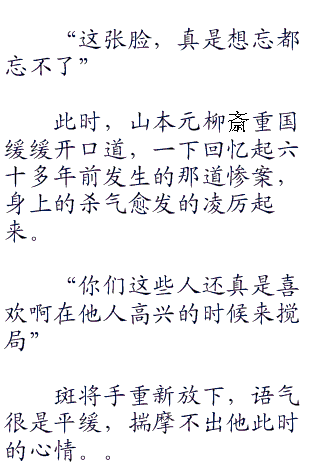 “这张脸，真是想忘都
忘不了”
此时，山本元柳斎重国
缓缓开口道，一下回忆起六
十多年前发生的那道惨案，
身上的杀气愈发的凌厉起
来。
“你们这些人还真是喜
欢啊在他人高兴的时候来搅
局”
斑将手重新放下，语气
很是平缓，揣摩不出他此时
的心情。。